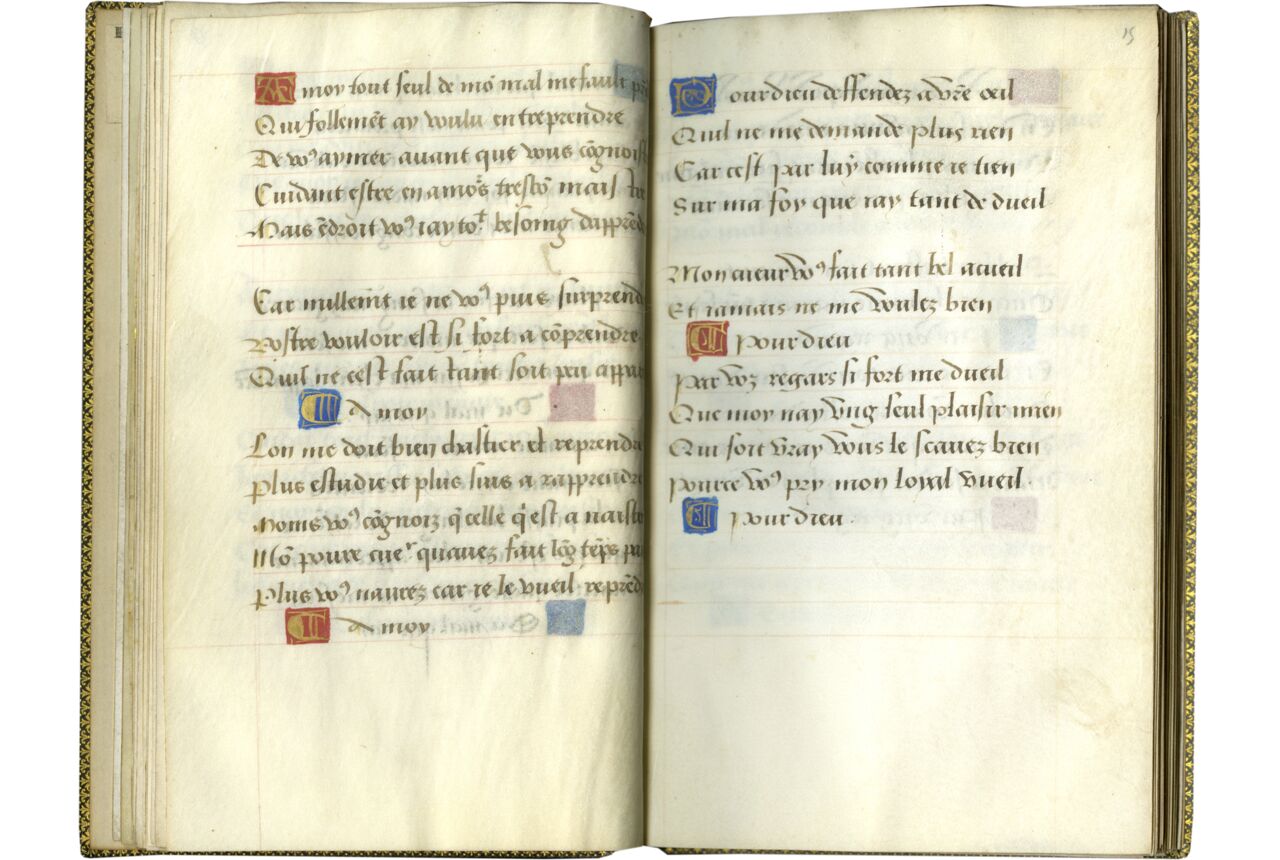 A moy tout seul de mō mal me fault
Qui follemēt ay voulu entreprendre
De voꝰ aymer auant que vous cōgnois
Cuidant estre en amōs trestō mais
Mais ēdroit voꝰ iay toᵗ besoing dapprēd
Car nullemēt ie ne voꝰ puis surprend
Vostre vouloir est si fort a cōprendre
Quil ne cest fait tant soit peu appar
A moy
Lon me doit bien chastier et reprendre
Plus estudie et plus suis a rapprendre
Moins voꝰ cōgnoiz q̄ celle q̄ est a naistre
Mō poure cueʳ quauez fait lōg tēps
Plus voꝰ naurez car ie le vueil reprēd
A moy
15
Pour dieu deffendez a vr̄e oeil
Quil ne me demande plus rien
Car cest par luy comme ie tien
Sur ma foy que iay tant de dueil
Mon cueur voꝰ fait tant bel acueil
Et iamais ne me voulez bien
Pour dieu
Par voz regars si fort me dueil
Que moy nay vng seul plaisir mien
Qui soit vray vous le scauez bien
Pource voꝰ pry mon loyal vueil
Pour dieu